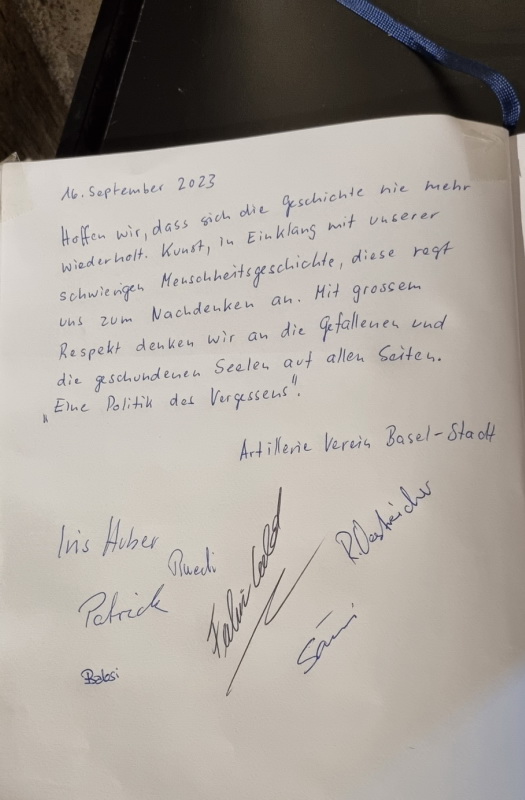 16. September 2023
Hoffen wir, dass sich die Geschichte nie mehr
wiederholt. Kunst, in Einklang mit unserer
schwierigen Menschheitsgeschichte, diese regt
uns zum Nachdenken an. Mit grossem
Respekt denken wir an die Gefallenen und
die geschundenen Seelen auf allen Seiten.
„Eine Politik des Vergessens".
Artillerie Verein Basel-Stadt
Iris Huber
Ruedi
Patrick
R. Oestreicher
Babsi